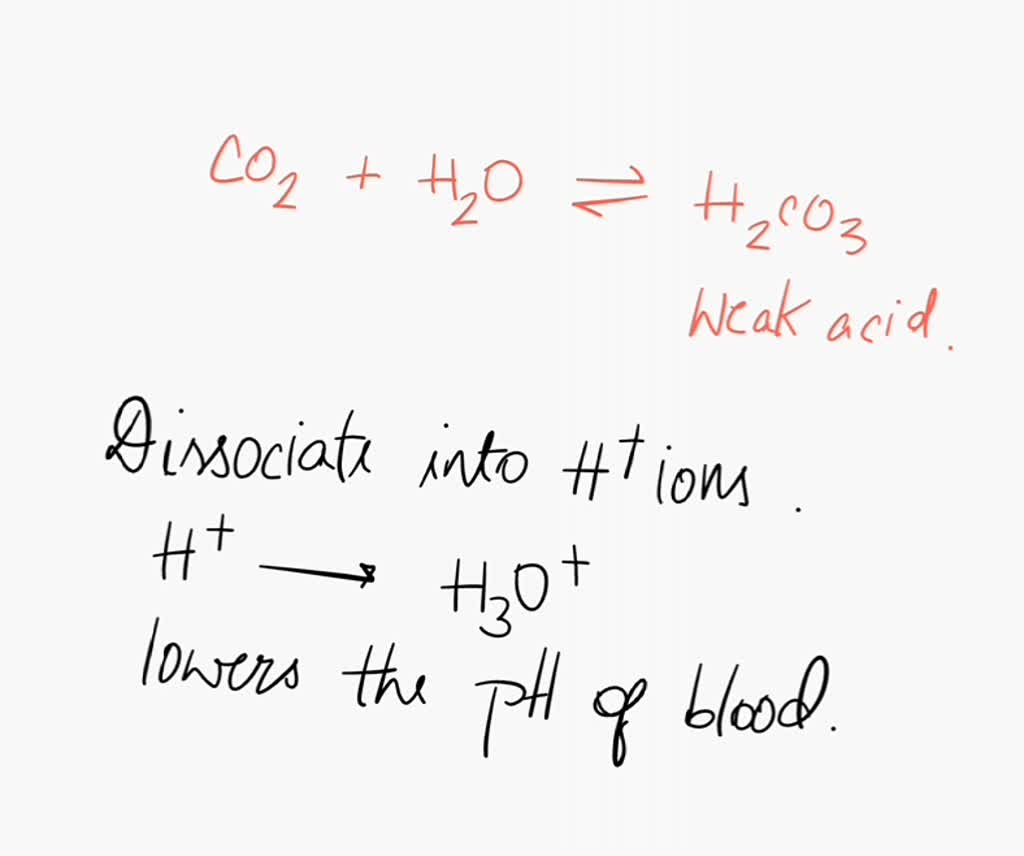 CO₂ + H₂O ⇌ H₂CO₃
Weak acid.
Dissociate into H⁺ ions.
H⁺ → H₃O⁺
lowers the pH of blood.